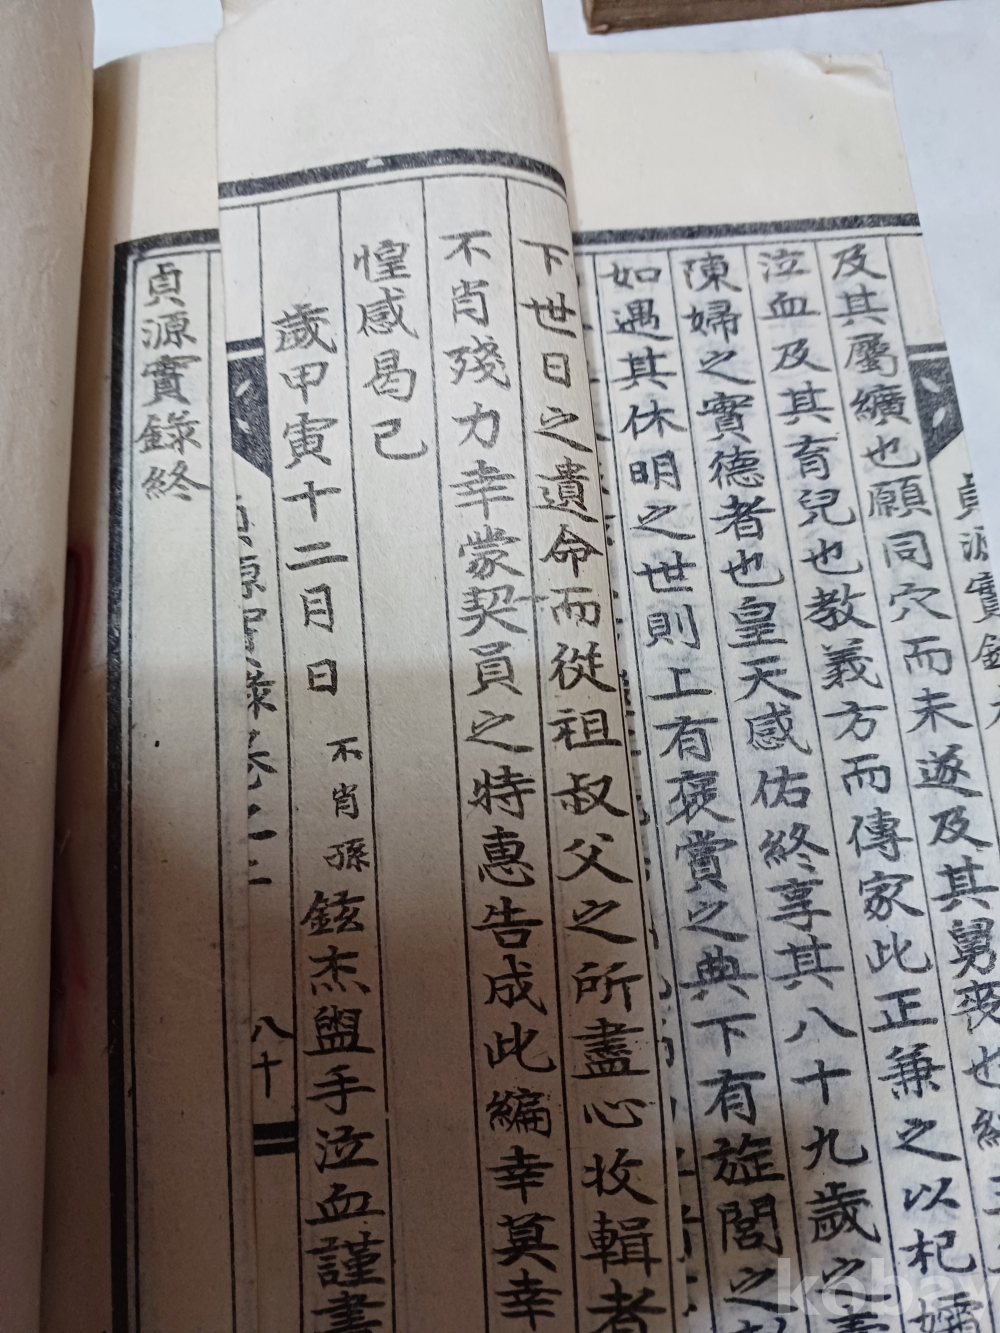 貞源實錄
及其屬纊也願同穴而未遂及其舅喪也
泣血及其育兒也教義方而傳家此正兼之以杞
陳婦之實德者也皇天感佑終享其八十九歲之
如遇其休明之世則上有褒賞之典下有旌閭之
下世日之遺命而從祖叔父之所盡心收輯者
不肖殘力幸蒙契員之特惠告成此編幸莫幸
惶感曷已
歲甲寅十二月日 不肖孫 鉉杰盥手泣血謹書
源實錄卷之二 八十
貞源實錄終
kobay